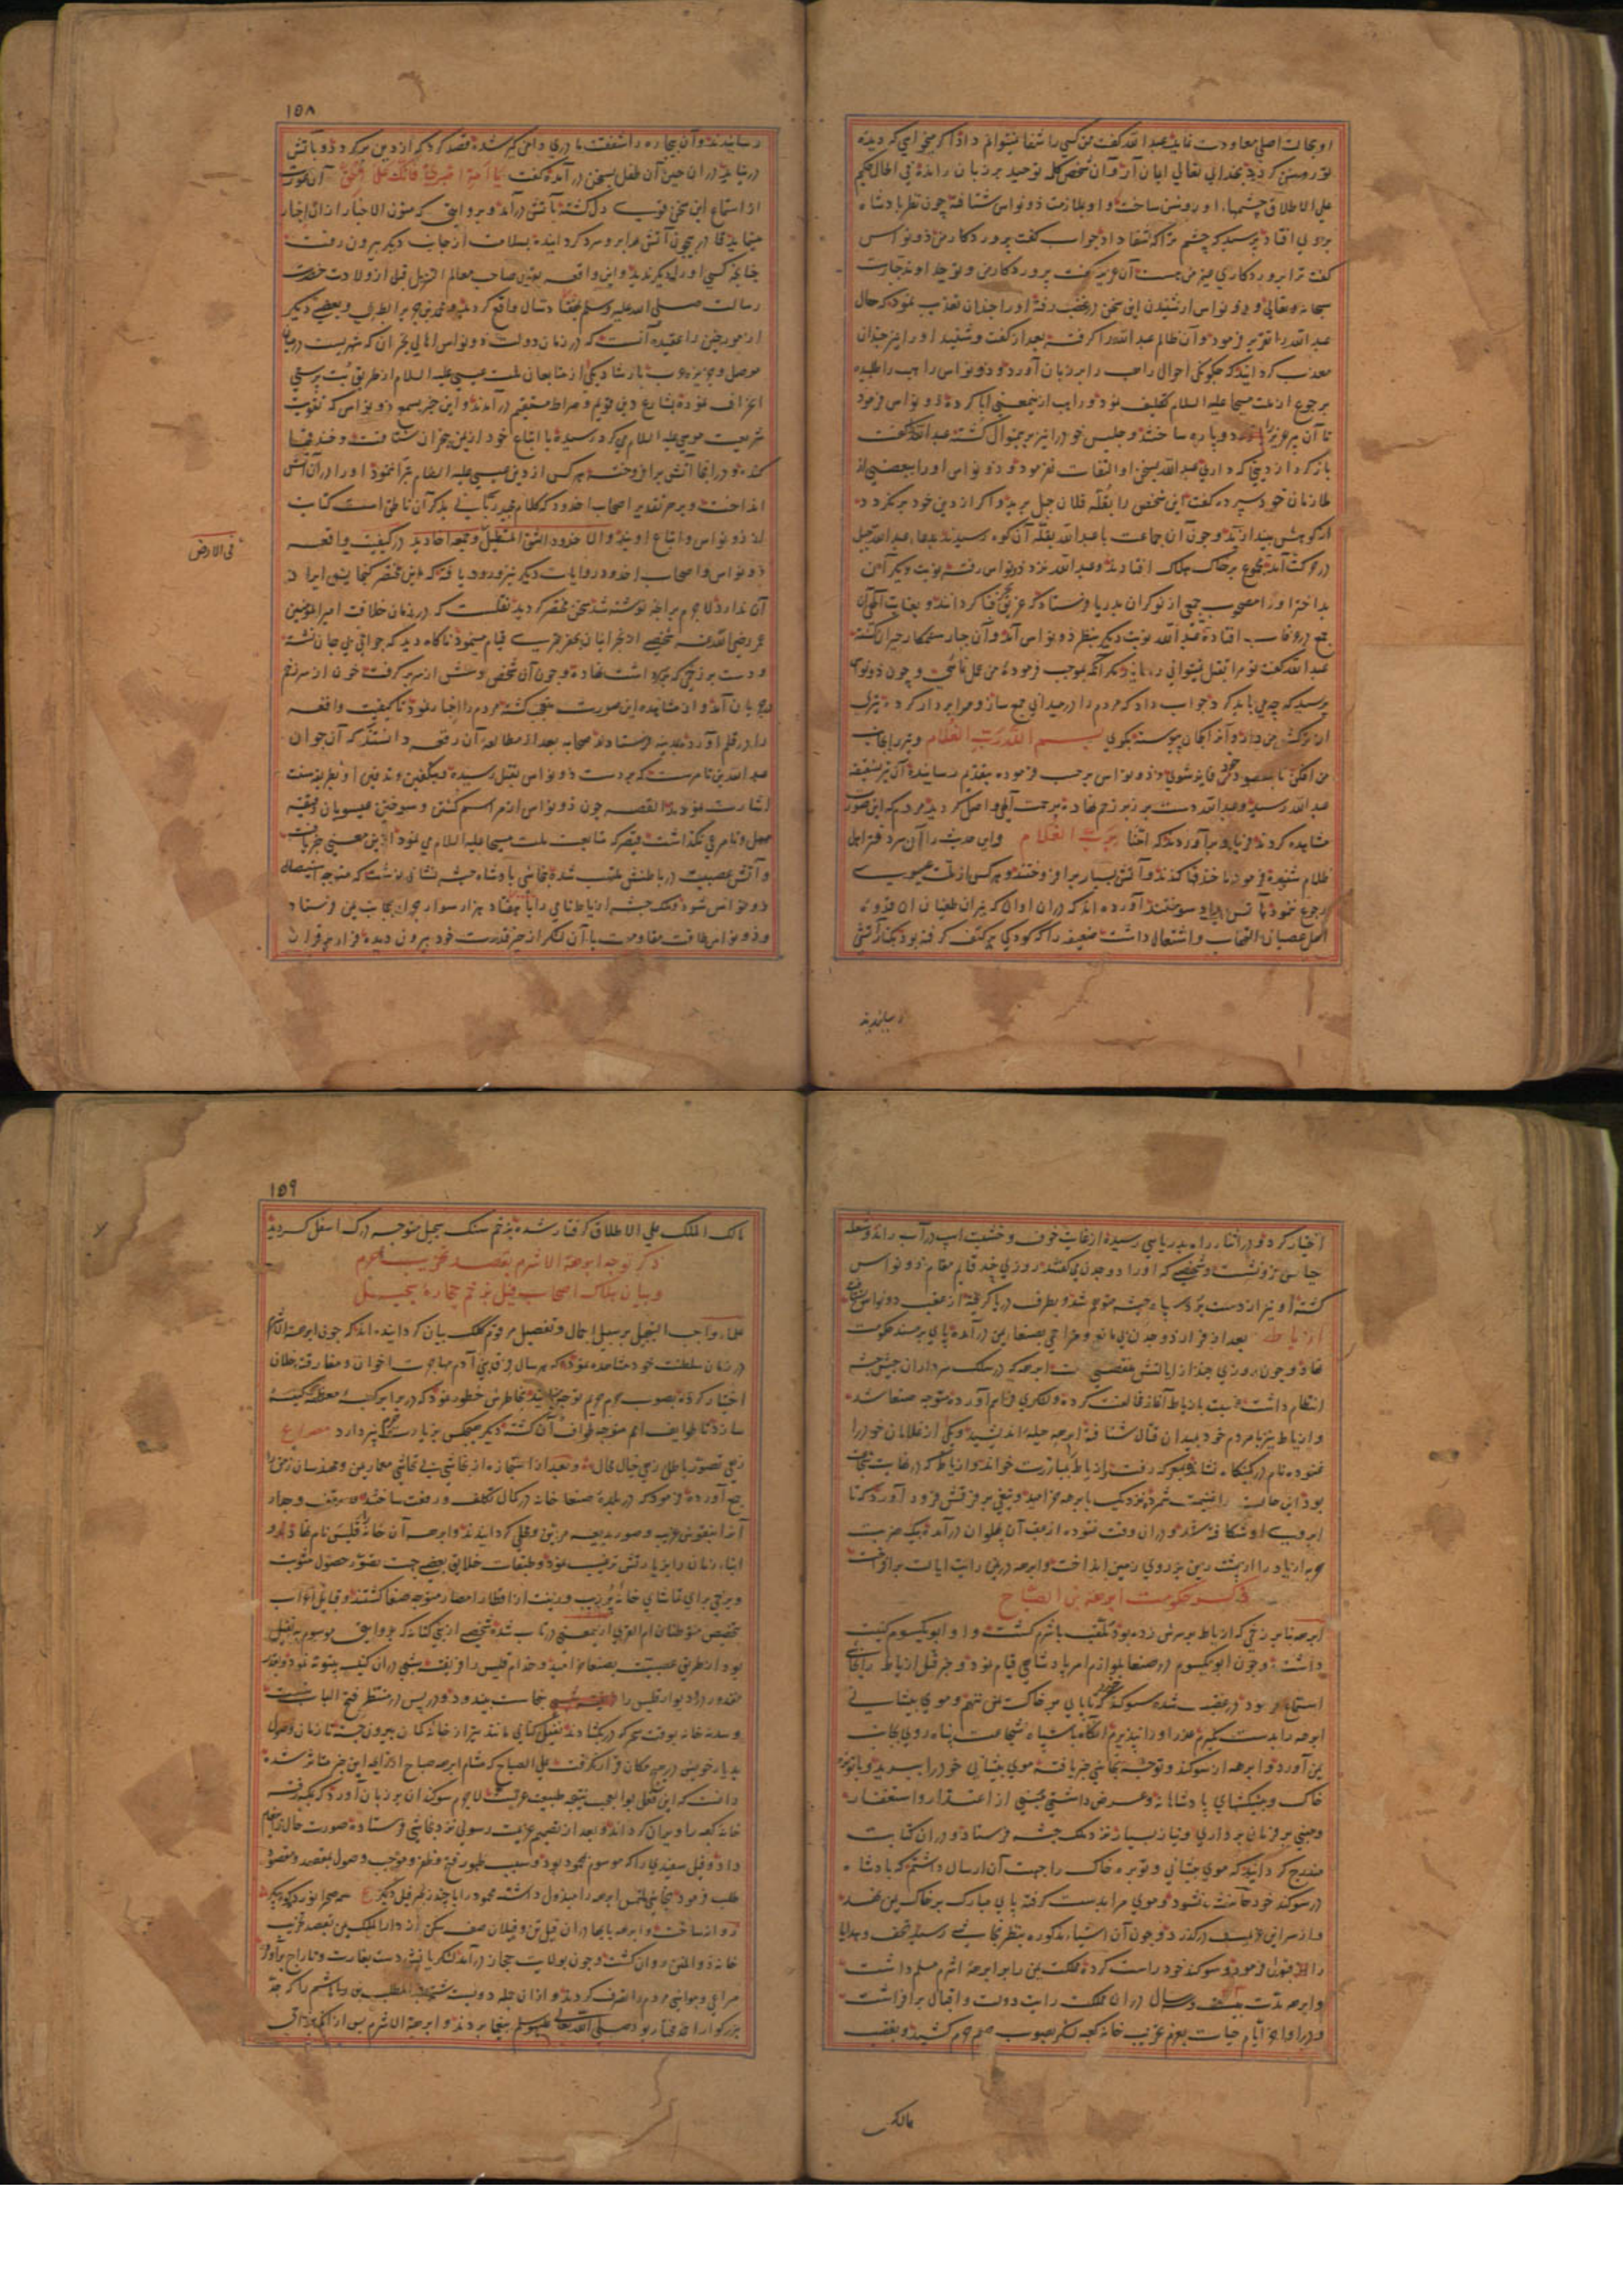 او بحالت اصلی معاودت نماید عبدالله گفت من کسی را شفا نتوانم داد اگر میخواهی که دیده
تو روشن گردد بخدای تعالی ایمان آر و آن شخص کلمه توحید بر زبان رانده فی الحال حکیم
علی الاطلاق چشمهاء او روشن ساخت و او بملازمت ذونواس شتافته چون نظر پادشاه
بر وی افتاد پرسید که چشم ترا که شفا داد جواب گفت پروردکار من ذونواس
گفت ترا پروردکاری غیر من هست آن عزیز گفت پروردکار من و تو خداوند تبارک
سبحانه وتعالی و ذونواس از شنیدن این سخن در غضب رفته او را چندان تعذیب نمود که حال
عبدالله را تقریر فرمود و آن ظالم عبدالله را گرفته بعد از گفت و شنید او را نیز چندان
معذب گردانید که چگونگی احوال راهب را بر زبان آورد و ذونواس راهب را طلبیده
برجوع از ملت مسیحا علیه السلام تکلیف نمود و راهب ازین معنی ابا کرده ذونواس فرمود
تا آن پیر عزیز را دوپاره ساختند و جلیس خود را نیز برین منوال کشته عبدالله را گفت
باز گرد از دینی که داری عبدالله بسخن او التفات نفرمود و ذونواس او را ببعضی از
ملازمان خود سپرده گفت این شخص را بقله فلان جبل برید و اگر از دین خود برنگردد
از کوهش بیندازید و چون آن جماعت با عبدالله بقله آن کوه رسیدند بدعاء عبدالله جبل
در حرکت آمده مجموع بر خاک هلاک افتادند و عبدالله نزد ذونواس رفته نوبت دیگر آن
بداختر او را مصحوب جمعی از نوکران بدریا فرستاد که غریق بحر فنا گردانند و بعنایت الهی آن
جمع در غرقاب افتاده عبدالله نوبت دیگر بنظر ذونواس آمد و آن جبار ستمکار حیران گشته
عبدالله گفت تو مرا بقتل نتوانی رسانید مگر آنکه بموجب فرموده من عمل نمائی و چون ذونواس
پرسید که چه می باید کرد جواب داد که مردم را در میدانی جمع ساز و مرا بر دار کرده تیری
از ترکش من در آر و آنرا بکمان پیوسته بگوی بسم الله رب الغلام و تیر را بجانب
من افکن تا بمقصود خود فایز شوی و ذونواس بر حسب فرموده بتقدیم رسانیده آن تیر بشقیقه
عبدالله رسید و عبدالله دست بر زبر زخم نهاده برحمت الهی واصل گردید مردم که این صورت
مشاهده کردند فریاد برآوردند که آمنا برب الغلام و این حدیث را آن سر دفتر اهل
ظلام شنیده فرمود تا خندقها کندند و آتش بسیار برافروختند و هر کس از ملت عیسوی
رجوع ننمود بآتش بیداد سوختند آورده اند که دران اوان که نیران طغیان آن قدوه
اهل عصیان التهاب و اشتعال داشت ضعیفه را که کودکی بر کتف گرفته بود بکنار آتش
رسانیدند
١٥٨
رسانیدند و آن بیچاره را شفقت مادری دامن گیر شده قصد کرد که از دین برگردد و بآتش
در نیاید در آن حین آن طفل بسخن در آمده گفت یا امه اصبری فانک علی الحق آن عورت
از استماع این سخن قوی دل گشته بآتش در آمد و بروایتی که متون الاخبار از ان اخبار
مینماید قادر بیچون آتش را برو سرد گردانیده بسلامت از جانب دیگر بیرون رفت
چنانچه کسی او را دیگر ندید و این واقعه بقول صاحب معالم التنزیل قبل از ولادت حضرت
رسالت صلی الله علیه وسلم بهفتاد سال واقع گردید و محمد بن جریر الطبری و بعضی دیگر
از مورخین را عقیده آنست که در زمان دولت ذونواس اهالی نجران که شهریست در میان
موصل و جزیره عرب بارشاد یکی از متابعان ملت عیسی علیه السلام از طریق بت پرستی
انحراف نموده بشارع دین قویم و صراط مستقیم در آمدند و این خبر بسمع ذونواس که تقویت
شریعت موسی علیه السلام می کرد رسیده با اتباع خود از یمن بنجران شتافت و خندقها
کنده و در آنجا آتش برافروخته هر کس از دین عیسی علیه السلام تبرا ننمود او را در آن آتش
انداخت و بر هر تقدیر اصحاب اخدود که کلام مجید ربانی بذکر آن ناطق است کنایت
از ذونواس و اتباع اویند والاخدود الشق المستطیل وجمعه اخادید در کیفیت واقعه
فی الارض
ذونواس و اصحاب اخدود روایات دیگر نیز ورود یافته که این مختصر گنجایش ایراد
آن ندارد لاجرم بر آنچه نوشته شد سخن مختصر گردید نقلست که در زمان خلافت امیرالمومنین
عمر رضی الله عنه شخصی از نجرانیان بحفر قیام مینمود ناگاه دید که جوانی بی جان نشسته
و دست بر زخمی که بر سر داشت نهاده و چون آن شخص دستش از سر برگرفت خون از سر زخم
در جریان آمد و از مشاهده این صورت متعجب گشته مردم را اخبار نمود تا کیفیت واقعه
را در قلم آورده بمدینه فرستادند صحابه بعد از مطالعه آن رقعه دانستند که آن جوان
عبدالله بن تامر ست که بر دست ذونواس بقتل رسیده و بتکفین و تدفین او بطریقه سنت
اشارت نمودند القصه چون ذونواس از مراسم کشتن و سوختن عیسویان دقیقه
مهمل و نامرعی نگذاشت قیصر که متابعت ملت مسیحا علیه السلام می نمود ازین معنی خبر یافت
و آتش عصبیت در باطنش ملتهب شده بنجاشی پادشاه حبشه نشانی نوشت که متوجه استیصال
ذونواس شود و ملک حبشه ارباط نامی را با هفتاد هزار سوار جرار بجانب یمن فرستاد
و ذونواس طاقت مقاومت با آن لشکر از حیز قدرت خود بیرون دیده فرار بر قرار
اختیار کرد و در اثناء راه بدریایی رسیده از غایت خوف و خشیت اسپ در آب راند و شعله
حیاتش فرو نشست و شخصی که او را ذوجدن می گفتند روزی چند قایم مقام ذونواس
گشته او نیز از دست برد سپاه حبشه متوهم شد و بطرف دریا گریخته از عقب ذونواس شتافت
ارباط بعد از فرار ذوجدن بی مانع و مزاحمی بصنعاء یمن در آمده پای بر مسند حکومت
نهاد و چون روزی چند از ایالتش منقضی گشت ابرهه که در سلک سرداران جیش حبشه
انتظام داشت نسبت بارباط آغاز مخالفت کرده لشکری فراهم آورده متوجه صنعا شد
و ارباط نیز با مردم خود بمیدان قتال شتافته ابرهه حیله اندیشید و یکی از غلامان خود را
عتوده نام در کمینگاه نشانده بمعرکه رفت و ارباط را بمبارزت خواند و ارباط که در غایت شجاعت
بود این حالت را غنیمت شمرده نزدیک بابرهه خرامید و تیغی بر فرقش فرود آورد که تا
ابروی او شکافته شد و در ان وقت عتوده از عقب آن پهلوان در آمده بیک ضربت
حربه ارباط را از پشت زین بر روی زمین انداخت و ابرهه در یمن رایت ایالت برافراخت
ذکر حکومت ابرهة بن الصباح
ابرهه بنابر زخمی که ارباط بر سرش زده بود ملقب باشرم گشت و او ابویکسوم کنیت
داشت و چون ابویکسوم در صنعا بلوازم امر پادشاهی قیام نمود و خبر قتل ارباط را نجاشی
استماع نمود در غضب شده سوگند خورد که تا پای بر خاک یمن ننهم و موی پیشانی
ابرهه را بدست نگیرم عذر او را نپذیرم آنگاه با سپاه شجاعت پناه روی بجانب
یمن آورد و ابرهه از سوگند و توجه نجاشی خبر یافته موی پیشانی خود را ببرید و با توبره
خاک و پیشکشهای پادشاهانه و عرض داشتی مبنی از اعتذار و استغفار
و مبنی بر فرمان برداری و نیاز بسیار نزد ملک حبشه فرستاد و در ان کتابت
مندرج گردانید که موی پیشانی و توبره خاک را جهت آن ارسال داشتم که پادشاه
در سوگند خود حانث نشود و موی مرا بدست گرفته پای مبارک بر خاک یمن نهد
و از سر این تقصیر درگذرد و چون آن اشیاء مذکوره بنظر نجاشی رسید تحف و هدایا
را قبول فرمود و سوگند خود راست کرده مملکت یمن را بر ابرهه اشرم مسلم داشت
و ابرهه مدت بیست و سه سال در ان مملکت رایت دولت و اقبال برافراشت
و در اواخر ایام حیات بعزم تخریب خانه کعبه لشکر بصوب حرم کشید و بغضب
مالک
١٥٩
مالک الملک علی الاطلاق گرفتار شده بزخم سنگ سجیل متوجه درک اسفل گردید
ذکر توجه ابرهة الاشرم بقصد تخریب حرم
و بیان هلاک اصحاب فیل بزخم حجارة سجیل
علماء واجب التبجیل بر سبیل اجمال و تفصیل مرقوم کلک بیان گردانیده اند که چون ابرهة الاشرم
در زمان سلطنت خود مشاهده نمود که هر سال فرق بنی آدم مهاجرت اخوان و مفارقت خلان
اختیار کرده بصوب حرم محترم توجه مینمایند بخاطرش خطور نمود که در برابر کعبه معظمه کنیسه
سازد تا طوایف امم متوجه طواف آن گشته دیگر هیچکس بزیارت حرم نپردازد مصراع
زهی تصور باطل زهی خیال محال و بعد از استجازه از نجاشی بی تحاشی معماران و مهندسان زمین را
جمع آورده فرمود که در بلده صنعا خانه در کمال تکلف و رفعت ساختند و سقف و جدار
آنرا بنقوش غریب و صور بدیعه مزین و محلی گردانیدند و ابرهه آن خانه را قلیس نام نهاد و
ابناء زمان را بزیارتش ترغیب نمود و طبقات خلایق بعضی جهت تصور حصول مثوبت
و برخی برای تماشای خانه پر زیب و زینت از اقطار امصار متوجه صنعا گشتند و قبایل اعراب
بتخصیص متوطنان ام القری ازین معنی در تاب شده شخصی از بنی کنانه که بروایتی موسوم به نفیل
بود از طریق عصبیت بصنعا خرامید و خدام قلیس را فریفته شبی در ان کنیسه بیتوته نمود و بقدر
مقدور در و دیوار قلیس را بنجاست بیندود و در پس در منتظر فتح الباب نشست
و سدنه خانه بوقت سحر که در بگشادند نفیل کنانی مانند تیر از خانه کمان بیرون جسته تا زمان وصول
بدیار خویش در هیچ مکان قرار نگرفت علی الصباح که مشام ابرهه صباح از رایحه این خبر متاثر شد
دانست که این فعل بوالعجب نتیجه طبیعت عربست لاجرم سوگندان بر زبان آورد که بمکه رفته
خانه کعبه را ویران گرداند و بعد از تصمیم عزیمت رسولی نزد نجاشی فرستاده صورت حال را پیغام
داد و فیل سفیدی را که موسوم بمحمود بود و سبب ظهور فتح و ظفر و موجب وصول بمقصد و مقصود
طلب فرمود نجاشی ملتمس ابرهه را مبذول داشته محمود را با چند زنجیر فیل دیگر
روان ساخت و ابرهه با سپاه گران قیل تن و فیلان صف شکن از دار الملک یمن بقصد تخریب
خانه ذوالمنن روان گشت و چون بولایت حجاز در آمد لشکریانش دست بغارت و تاراج برآورده
مراعی و مواشی مردم را تصرف کردند و از ان جمله دویست شتر عبدالمطلب بن هاشم را که جد
بزرگوار افتخار بود صلی الله علیه وسلم بیغما بردند و ابرهة الاشرم پس از آنکه بر